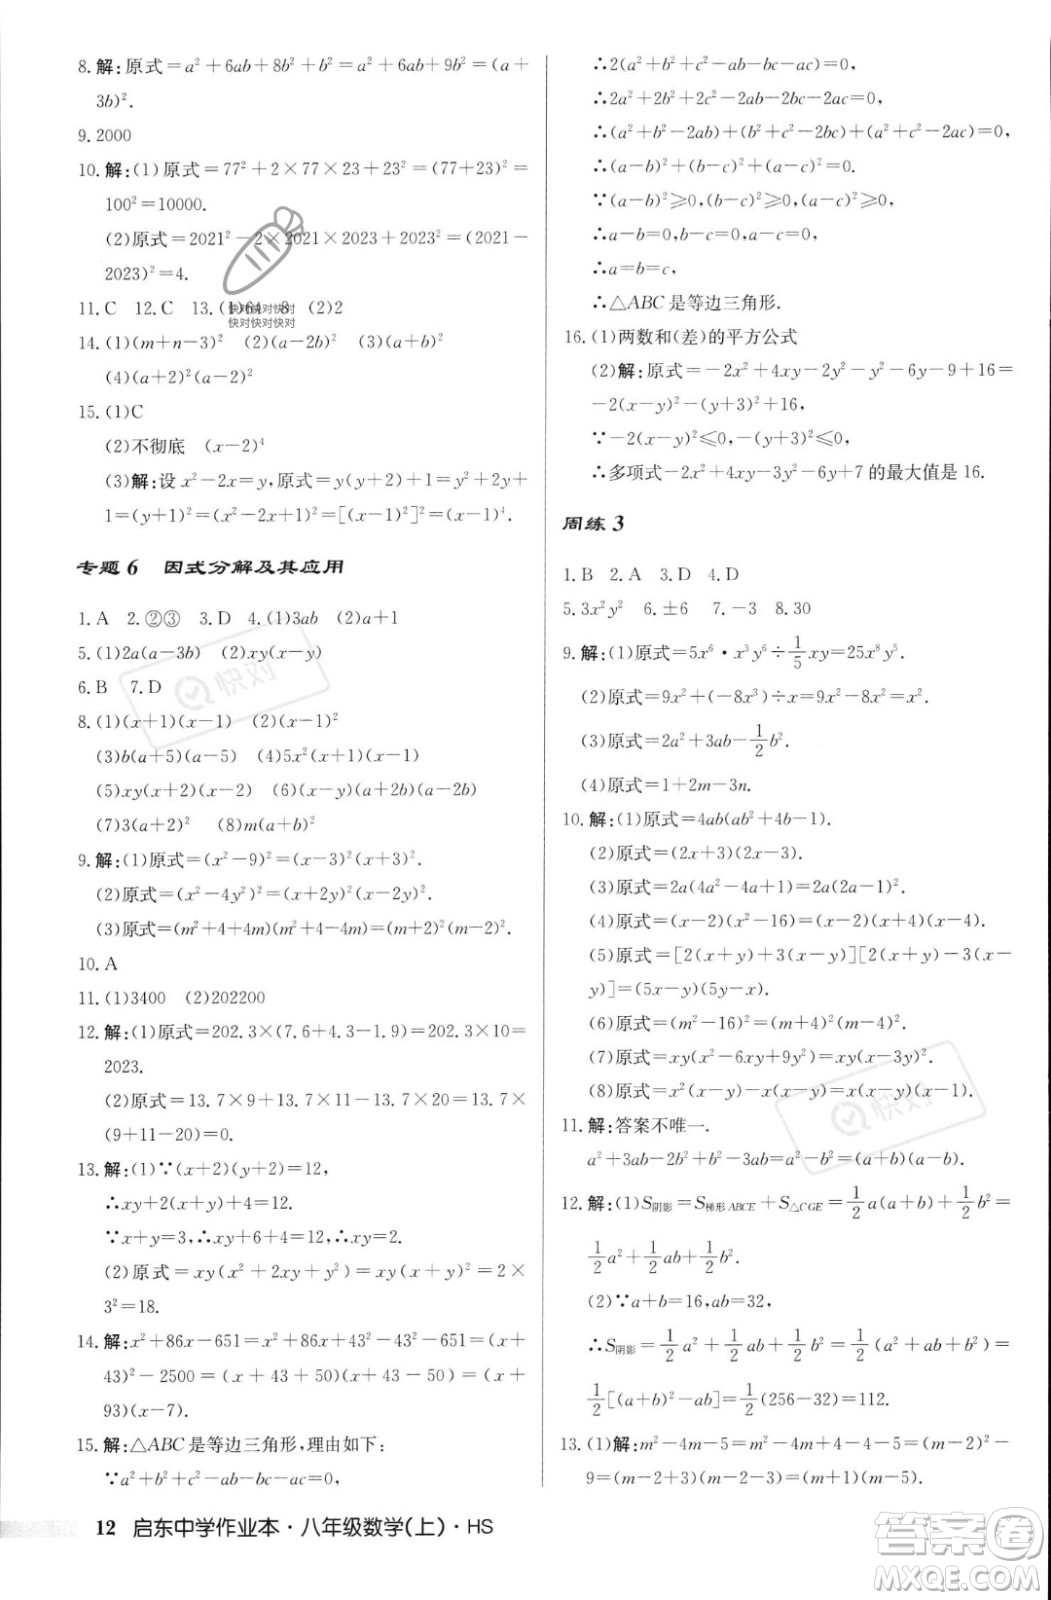 8.解:原式=a²+6ab+8b²+b²=a²+6ab+9b²=(a+
3b)².
9.2000
10.解:(1)原式=77²+2×77×23+23²=(77+23)²=
100²=10000.
(2)原式=2021²-2×2021×2023+2023²=(2021-
2023)²=4.
11.C 12.C 13.(1)64 8 (2)2
快对快对快对
快对快对快对
14.(1)(m+n-3)² (2)(a-2b)² (3)(a+b)²
(4)(a+2)²(a-2)²
15.(1)C
(2)不彻底 (x-2)⁴
(3)解:设x²-2x=y,原式=y(y+2)+1=y²+2y+
1=(y+1)²=(x²-2x+1)²=[(x-1)²]²=(x-1)⁴.
专题6 因式分解及其应用
1.A 2.②③ 3.D 4.(1)3ab (2)a+1
5.(1)2a(a-3b) (2)xy(x-y)
6.B 7.D
8.(1)(x+1)(x-1) (2)(x-1)²
(3)b(a+5)(a-5) (4)5x²(x+1)(x-1)
(5)xy(x+2)(x-2) (6)2(a+1)(a-1)
(7)3(a+2)² (8)m(a+2)²
9.解:(1)原式=(x²-9)²=(x-3)²(x+3)².
(2)原式=(x²-4y²)²=(x+2y)²(x-2y)².
(3)原式=(m²+4+4m)(m²+4-4m)=(m+2)²(m-2)².
10.A
11.(1)3400 (2)202200
12.解:(1)原式=202.3×(7.6+4.3-1.9)=202.3×10=
2023.
(2)原式=13.7×9+13.7×11-13.7×20=13.7×
(9+11-20)=0.
13.解:(1)∵(x+2)(y+2)=12,
∴xy+2(x+y)+4=12.
∵x+y=3,∴xy+6+4=12,∴xy=2.
(2)原式=xy(x²+2xy+y²)=xy(x+y)²=2×
3²=18.
14.解:x²+86x-651=x²+86x+43²-43²-651=(x+
43)²-2500=(x+43+50)(x+43-50)=(x+
93)(x-7).
15.解:△ABC是等边三角形,理由如下:
∵a²+b²+c²-ab-bc-ac=0,
12 启东中学作业本·八年级数学(上)·HS
∴2(a²+b²+c²-ab-bc-ac)=0,
∴2a²+2b²+2c²-2ab-2bc-2ac=0,
∴(a²+b²-2ab)+(b²+c²-2bc)+(a²+c²-2ac)=0,
∴(a-b)²+(b-c)²+(a-c)²=0.
∵(a-b)²≥0,(b-c)²≥0,(a-c)²≥0,
∴a-b=0,b-c=0,a-c=0,
∴a=b=c,
∴△ABC是等边三角形.
16.(1)两数和(差)的平方公式
(2)解:原式=-2x²+4xy-2y²-y²-6y-9+16=
-2(x-y)²-(y+3)²+16,
∵-2(x-y)²≤0,-(y+3)²≤0,
∴多项式-2x²+4xy-3y²-6y+7的最大值是16.
周练3
1.B 2.A 3.D 4.D
5.3x²y² 6.±6 7.-3 8.30
9.解:(1)原式=5x⁶·x³y⁶÷1/5xy=25x⁸y⁵.
(2)原式=9x²+(-8x³)÷x=9x²-8x²=x².
(3)原式=2a²+3ab-1/2b².
(4)原式=1+2m-3n.
10.解:(1)原式=4ab(ab²+4b-1).
(2)原式=(2x+3)(2x-3).
(3)原式=2a(4a²-4a+1)=2a(2a-1)².
(4)原式=(x-2)(x²-16)=(x-2)(x+4)(x-4).
(5)原式=[2(x+y)+3(x-y)][2(x+y)-3(x-
y)]=(5x-y)(5y-x).
(6)原式=(m²-16)²=(m+4)²(m-4)².
(7)原式=xy(x²-6xy+9y²)=xy(x-3y)².
(8)原式=x²(x-y)-(x-y)=(x-y)(x+1)(x-1).
11.解:答案不唯一.
a²+3ab-2b²-3ab+b²=a²-b²=(a+b)(a-b).
12.解:(1)S阴影=S梯形ABCE+S△CGE=1/2a(a+b)+1/2b²=
1/2a²+1/2ab+1/2b².
(2)∵a+b=16,ab=32,
∴S阴影=1/2a²+1/2ab+1/2b²=1/2(a²+ab+b²)=
1/2[(a+b)²-ab]=1/2(256-32)=112.
13.(1)解:m²-4m-5=m²-4m+4-9=(m-2)²-
9=(m-2+3)(m-2-3)=(m+1)(m-5).
快对
快对
答案圈
MXQE.COM